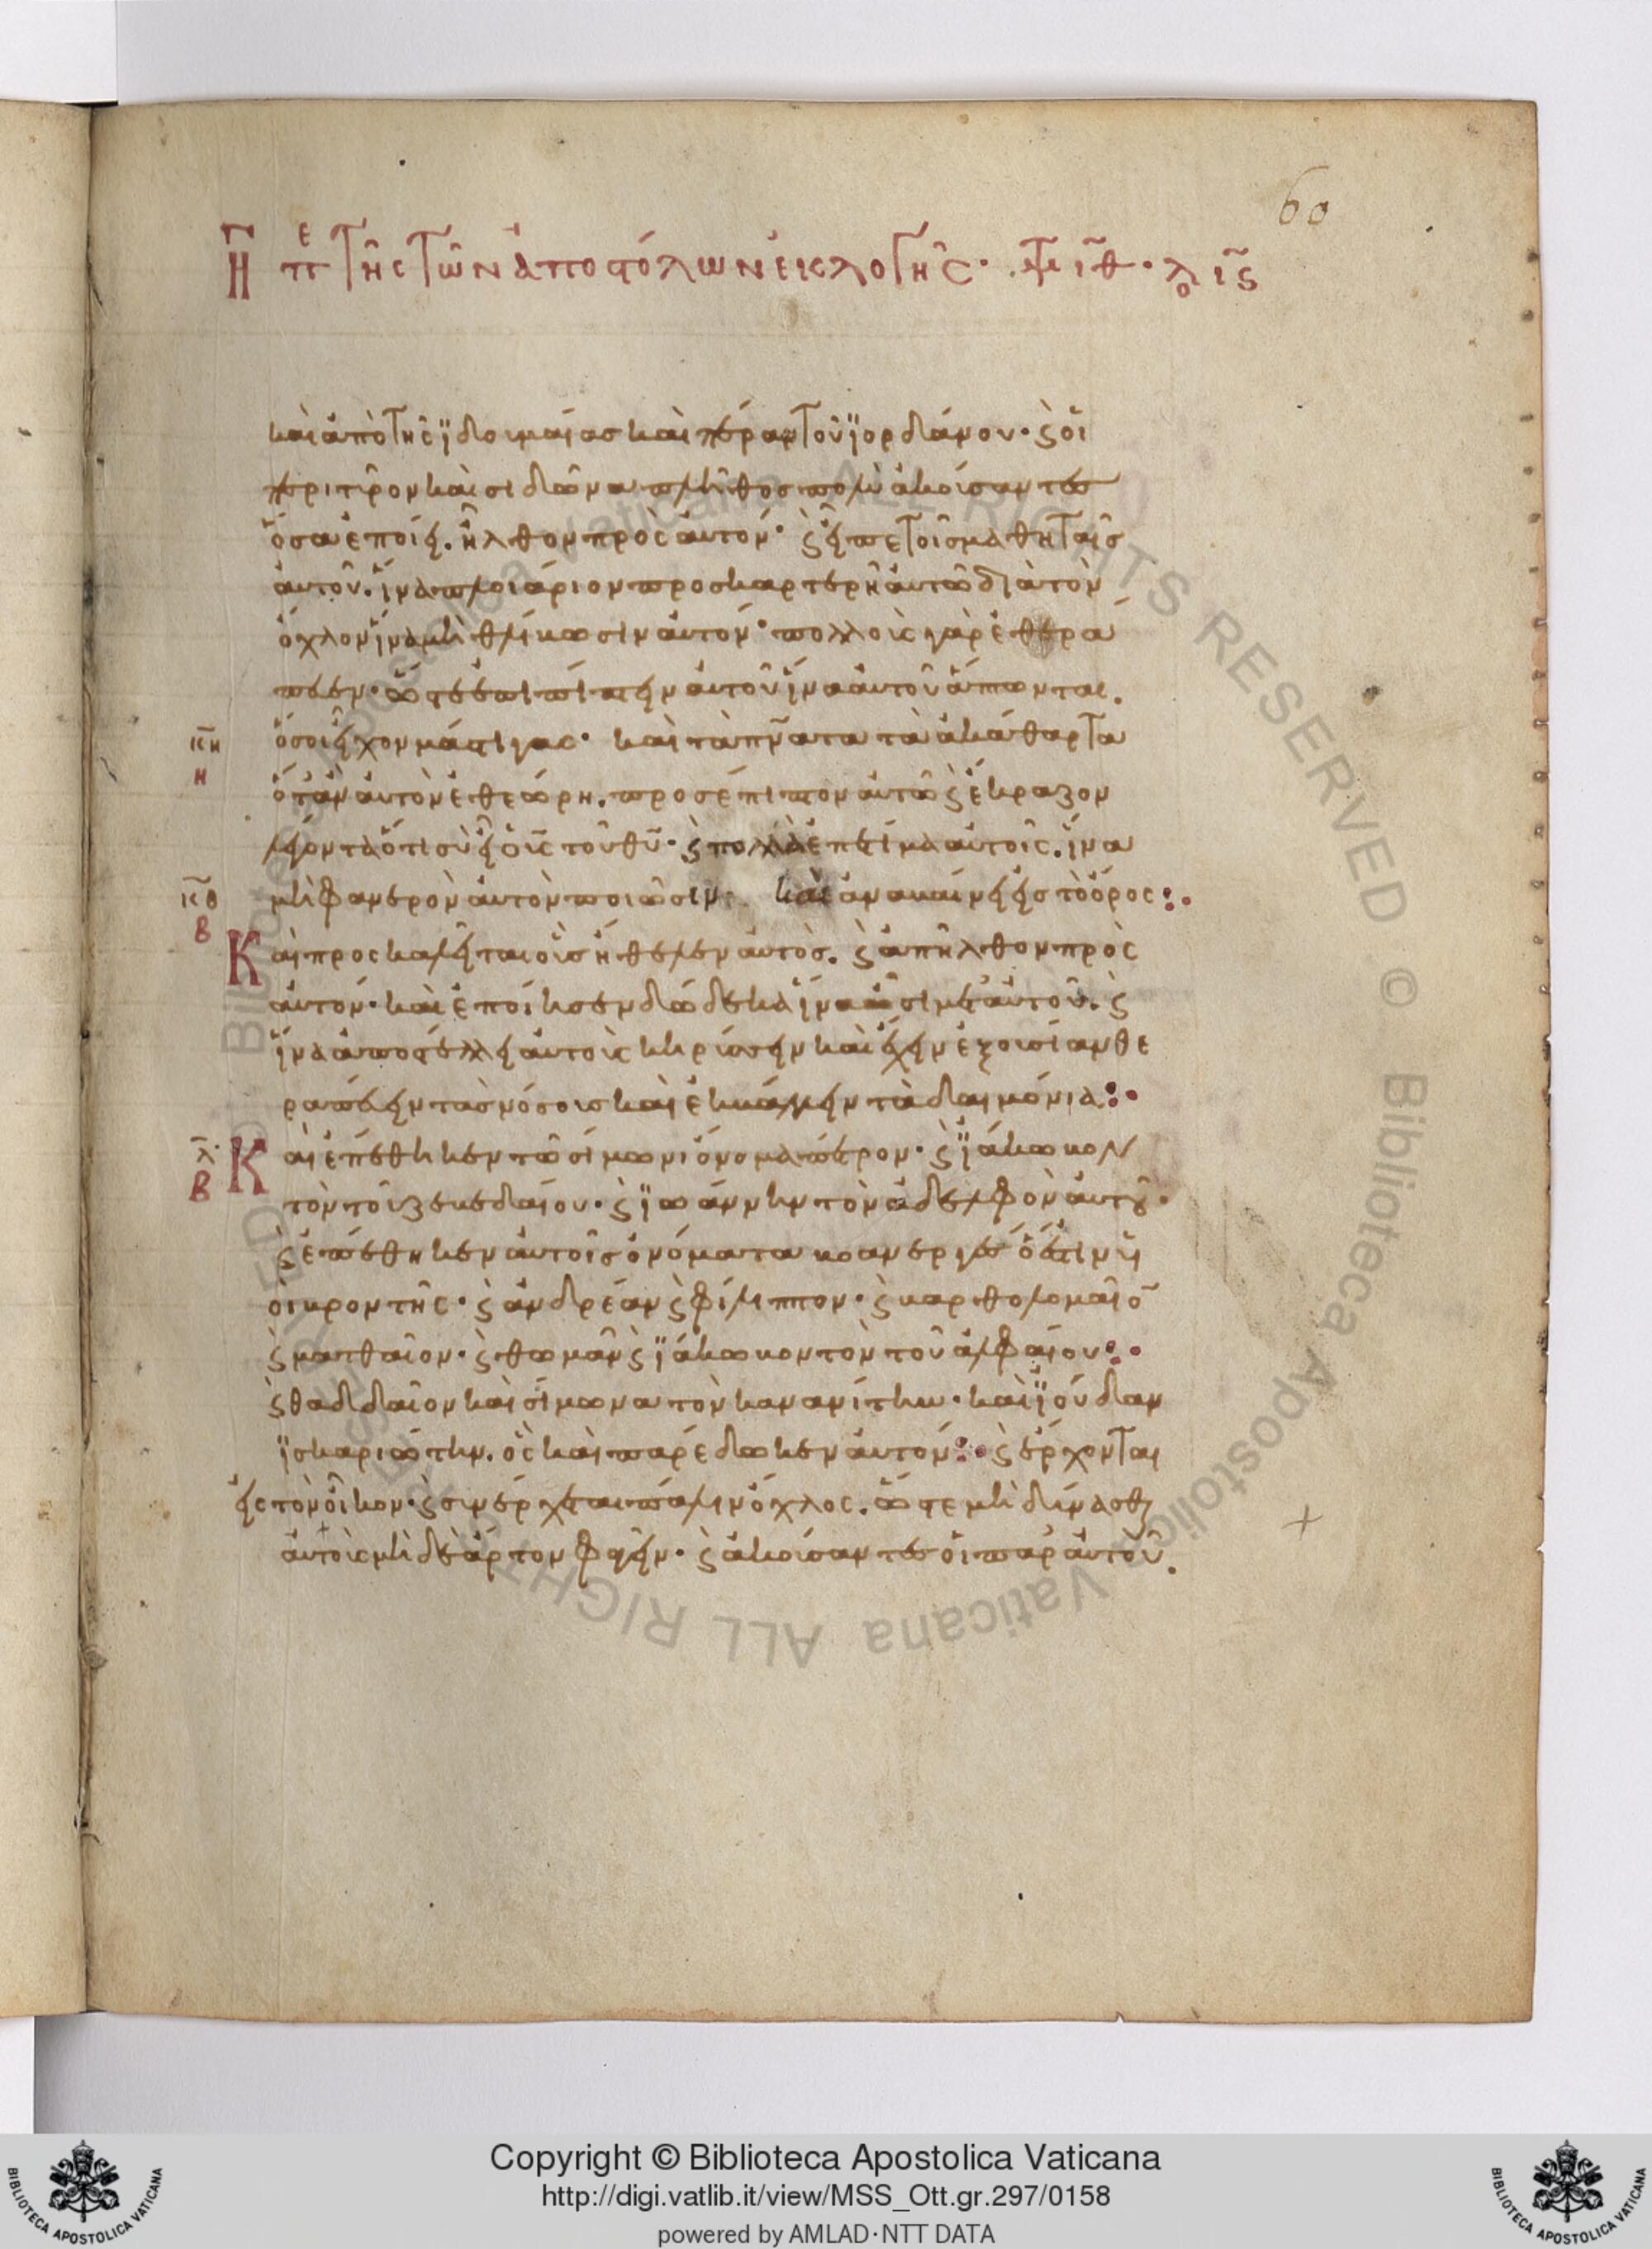 60
Η πε τῆς τῶν ἀποστόλων ἐκλογῆς· Μτ ιθ· λο ιδ
καὶ ἀπὸ τῆς ϊδουμαίας καὶ πέραν τοῦ ϊορδάνου· ϗ οἱ
περὶ τύρον καὶ σιδῶνα πλῆθος πολὺ ἀκούσαντες
ὅσα ἐποίει. ἦλθον πρὸς αὐτόν· ϗ εἶπε τοῖς μαθηταῖς
αὐτοῦ. ἵνα πλοιάριον προσκαρτερῆ αὐτῶ διὰ τὸν
ὄχλον ἵνα μὴ θλίβωσιν αὐτόν· πολλοὺς γὰρ ἐθερά
πευεν· ὥστε ἐπιπίπτειν αὐτοῦ ἵνα αὐτοῦ ἅπωνται.
κη ὅσοι εἶχον μάστιγας· καὶ τὰ πνατα τὰ ἀκάθαρτα
η ὅταν αὐτὸν ἐθεώρη. προσέπιπτον αὐτῶ ϗ ἔκραζον
λέγοντα ὅτι σὺ εἶ ὁ υς τοῦ θυ· ϗ πολλὰ ἐπετίμα αὐτοῖς. ἵνα
κθ μὴ φανερὸν αὐτὸν ποιῶσιν· καὶ ἀναβαίνει εἰς τὸ ὄρος:·
β Καὶ προσκαλεῖται οὓς ἤθελεν αὐτός. ϗ ἀπῆλθον πρὸς
αὐτόν· καὶ ἐποίησεν δώδεκα ἵνα ὦσι μετ αὐτοῦ. ϗ
ἵνα ἀποστέλλη αὐτοὺς κηρύσσειν καὶ ἔχειν ἐξουσίαν θε
ραπεύειν τὰς νόσους καὶ ἐκβάλλειν τὰ δαιμόνια:·
λ Καὶ ἐπέθηκεν τῶ σίμωνι ὄνομα πέτρον· ϗ ϊάκωβον
β τὸν τοῦ ζεβεδαίου· ϗ ϊωάννην τὸν ἀδελφὸν αὐτοῦ·
ϗ ἐπέθηκεν αὐτοῖς ὀνόματα βοανεργές ὅ ἐστιν υἱ
οὶ βροντῆς· ϗ ἀνδρέαν ϗ φίλιππον· ϗ βαρθολομαῖο
ϗ ματθαῖον· ϗ θωμᾶν ϗ ϊάκωβον τὸν τοῦ ἀλφαίου:·
ϗ θαδδαῖον καὶ σίμωνα τὸν κανανίτην· καὶ ϊούδαν
ϊσκαριώτην. ὃς καὶ παρέδωκεν αὐτόν:· ϗ ἔρχονται
εἰς τὸν οἶκον· ϗ συνέρχεται πάλιν ὄχλος. ὥστε μὴ δύνασθαι
αὐτοὺς μὴ δὲ ἄρτον φαγεῖν· ϗ ἀκούσαντες οἱ παρ αὐτοῦ.
Copyright © Biblioteca Apostolica Vaticana
http://digi.vatlib.it/view/MSS_Ott.gr.297/0158
powered by AMLAD·NTT DATA